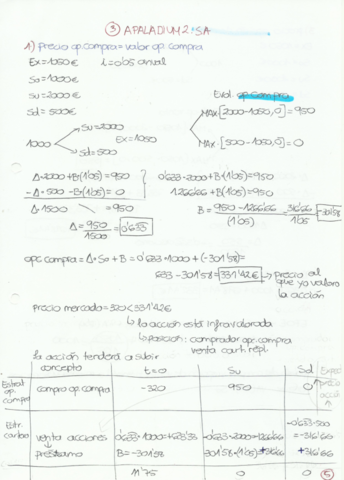 ③ APALADIUM2:SA
1) Precio op.compra = valor op. compra
Ex=1050€ i=0'05 anual
So=1000€
Su=2000€ Evol. op. compra
Sd=500€
Su=2000 MAX·[2000-1050,0]=950
1000 Ex=1050
Sd=500 MAX·[500-1050,0]=0
Δ·2000+B(1'05)=950 0'633·2000+B(1'05)=950
-Δ·500-B(1'05)=0 1266'66+B(1'05)=950
Δ·1500 =950 B=950-1266'66/(1'05)=-316'66/1'05=-301'58
Δ=950/1500=0'633
opc compra=Δ·So+B=0'633·1000+(-301'58)=
633-301'58=331'42€ → precio al
que yo valoro
la acción
Precio mercado=320<331'42€
↳ la acción está infravalorada
↳ posición: comprador op.compra
venta cart. repl.
la acción tenderá a subir
concepto t=0 Su Sd
Estrat op. compra compro op.compra -320 950 0
-0'633·500
Estr carbo venta acciones 0'633·1000=+633'33 -0'633·2000=-1266'66 =-316'66
préstamo B=-301'58 301'58·(1'05)=+316'66 +316'66
11'75 0 0 ⑤